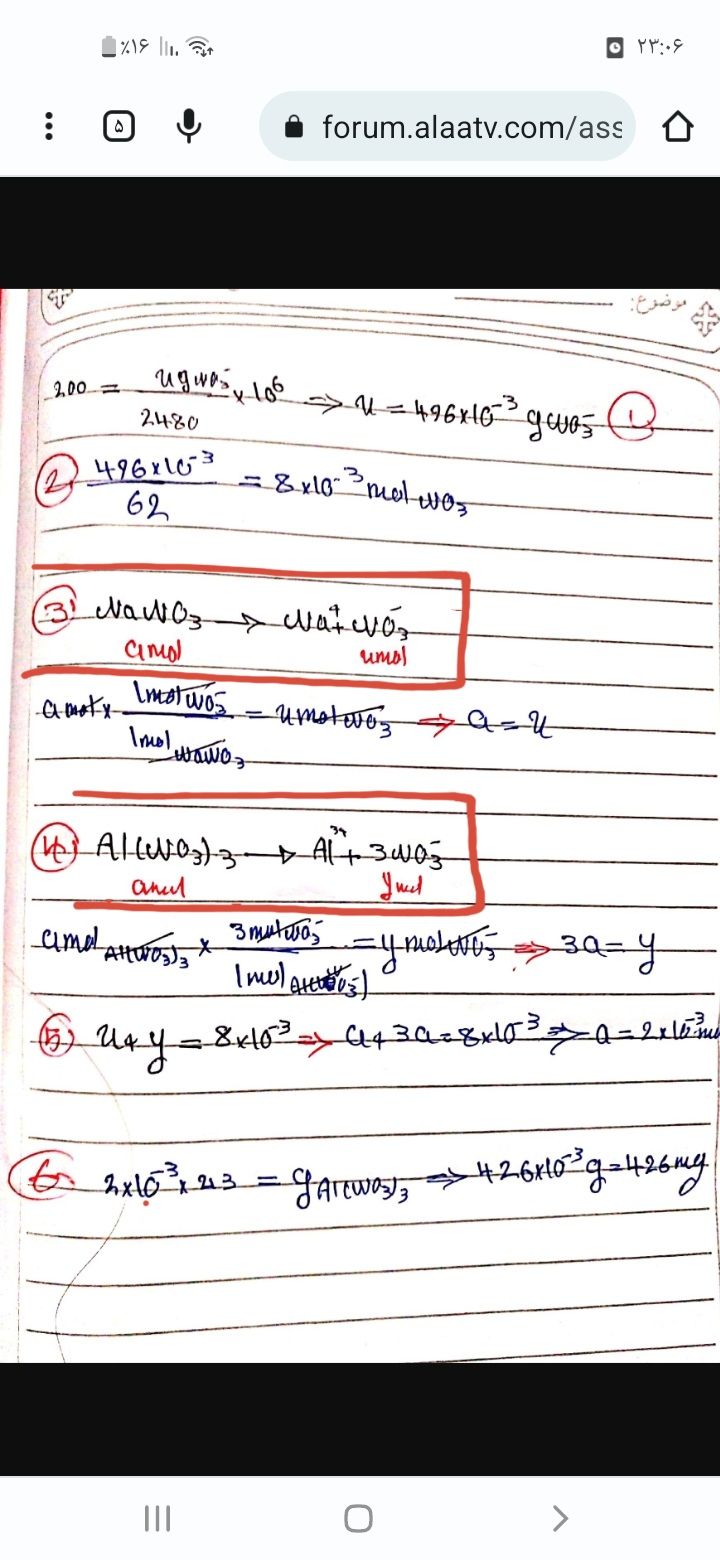 ٪۱۶ ۲۳:۰۶
۵ forum.alaatv.com/ass
موضوع:
200 = u g NO₃⁻ / 2480 × 10⁶ ⇒ u = 496×10⁻³ g NO₃⁻ ①
② 496×10⁻³ / 62 = 8×10⁻³ mol NO₃
③ NaNO₃ → Na⁺ + NO₃⁻
a mol u mol
a mol × 1 mol NO₃⁻ / 1 mol NaNO₃ = u mol NO₃ ⇒ a = u
④ Al(NO₃)₃ → Al³⁺ + 3NO₃⁻
a mol y mol
a mol Al(NO₃)₃ × 3 mol NO₃⁻ / 1 mol Al(NO₃⁻) = y mol NO₃⁻ ⇒ 3a = y
⑤ u + y = 8×10⁻³ ⇒ a + 3a = 8×10⁻³ ⇒ a = 2×10⁻³ m
⑥ 2×10⁻³ × 213 = g Al(NO₃)₃ ⇒ 426×10⁻³ g = 426 mg